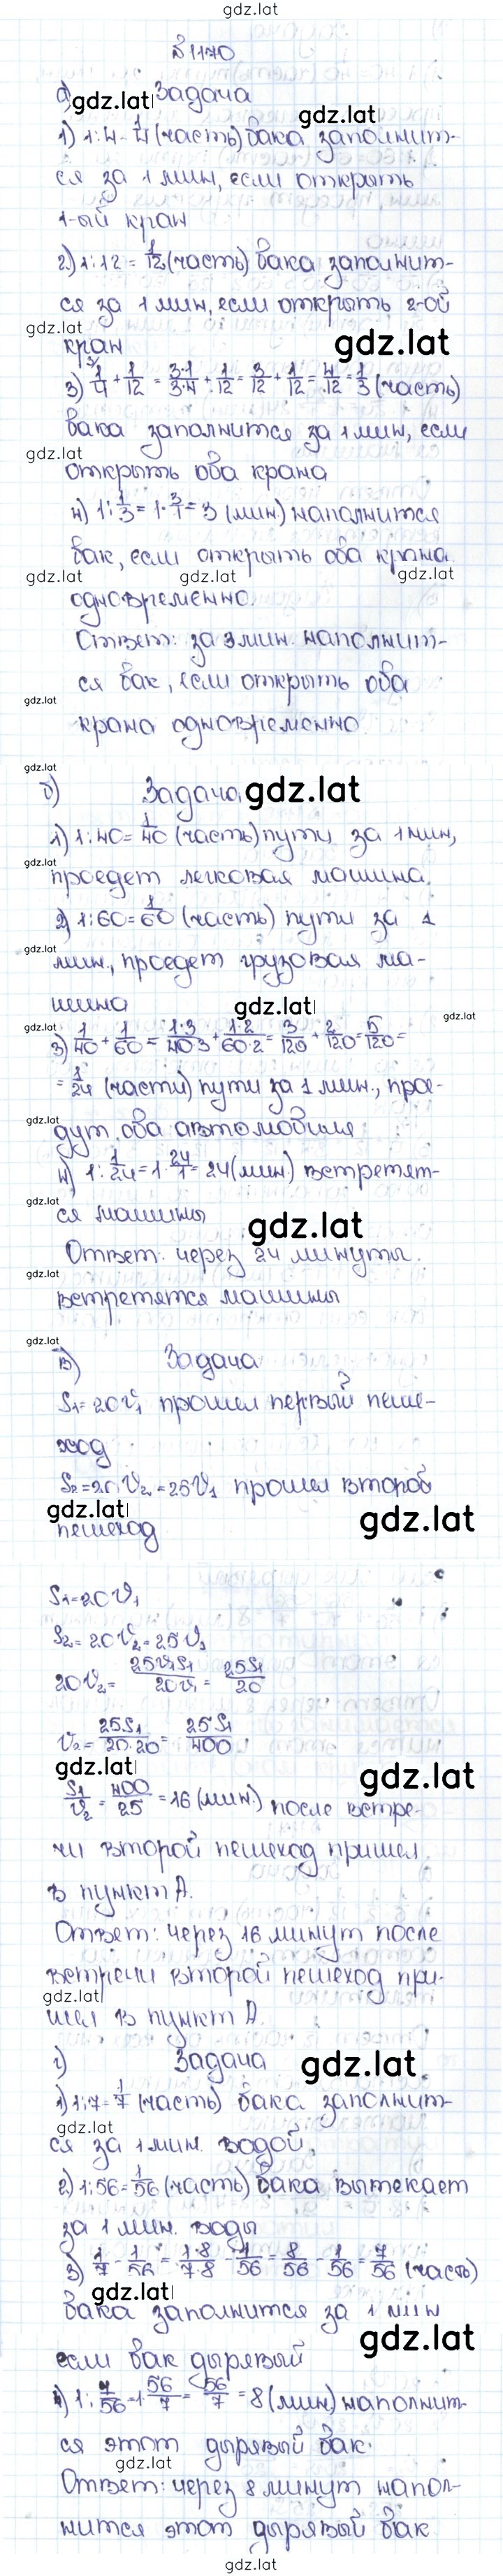 gdz.lat
№ 1170
а) Задача
gdz.lat
gdz.lat
1) 1:4 - 1/4 (часть) бака заполнит-
ся за 1 мин, если открыть
1-ый кран
2) 1:12 = 1/12 (часть) бака заполнит-
ся за 1 мин, если открыть 2-ой
gdz.lat
кран
gdz.lat
3) 1/4 + 1/12 = 3·1/3·4 + 1/12 = 3/12 + 1/12 = 4/12 = 1/3 (часть)
бака заполнится за 1 мин, если
gdz.lat
открыть оба крана
4) 1 : 1/3 = 1 · 3/1 = 3 (мин) наполнится
бак, если открыть оба крана
gdz.lat gdz.lat gdz.lat
одновременно.
Ответ: за 3 мин. наполнит-
ся бак, если открыть оба
gdz.lat
крана одновременно.
gdz.lat
б) Задача gdz.lat
1) 1:40 = 1/40 (часть) пути за 1 мин,
gdz.lat
проедет легковая машина.
2) 1:60 = 1/60 (часть) пути за 1
gdz.lat
мин., проедет грузовая ма-
шина
gdz.lat
gdz.lat gdz.lat
3) 1/40 + 1/60 = 1·3/40·3 + 1·2/60·2 = 3/120 + 2/120 = 5/120 =
= 1/24 (части) пути за 1 мин., прое-
gdz.lat
дут оба автомобиля
4) 1 : 1/24 = 1 · 24/1 = 24 (мин.) встретят-
gdz.lat
ся машины
gdz.lat
Ответ: через 24 минуты
gdz.lat
встретятся машины
gdz.lat
в) Задача
S₁ = 20v₁ прошел первый пеше-
ход
S₂ = 20v₂ = 25v₁ прошел второй
gdz.lat gdz.lat
пешеход
S₁ = 20v₁
S₂ = 20v₂ = 25v₁
20v₂ = 25v₁S₁/20v₁ = 25S₁/20
v₂ = 25S₁/20·20 = 25S₁/400
gdz.lat gdz.lat
S₁/v₂ = 400/25 = 16 (мин.) после встре-
чи второй пешеход пришел
в пункт А.
Ответ: через 16 минут после
встречи второй пешеход при-
gdz.lat
шел в пункт А.
г) Задача gdz.lat
1) 1:7 = 1/7 (часть) бака заполнит-
gdz.lat
ся за 1 мин. водой.
2) 1:56 = 1/56 (часть) бака вытекает
за 1 мин. воды
3) 1/7 - 1/56 = 1·8/7·8 - 1/56 = 8/56 - 1/56 = 7/56 (часть)
gdz.lat
бака заполнится за 1 мин
gdz.lat
если бак дырявый
4) 1 : 7/56 = 1 56/7 = 56/7 = 8 (мин) наполнит-
ся этот дырявый бак.
gdz.lat
Ответ: через 8 минут напол-
нится этот дырявый бак
gdz.lat